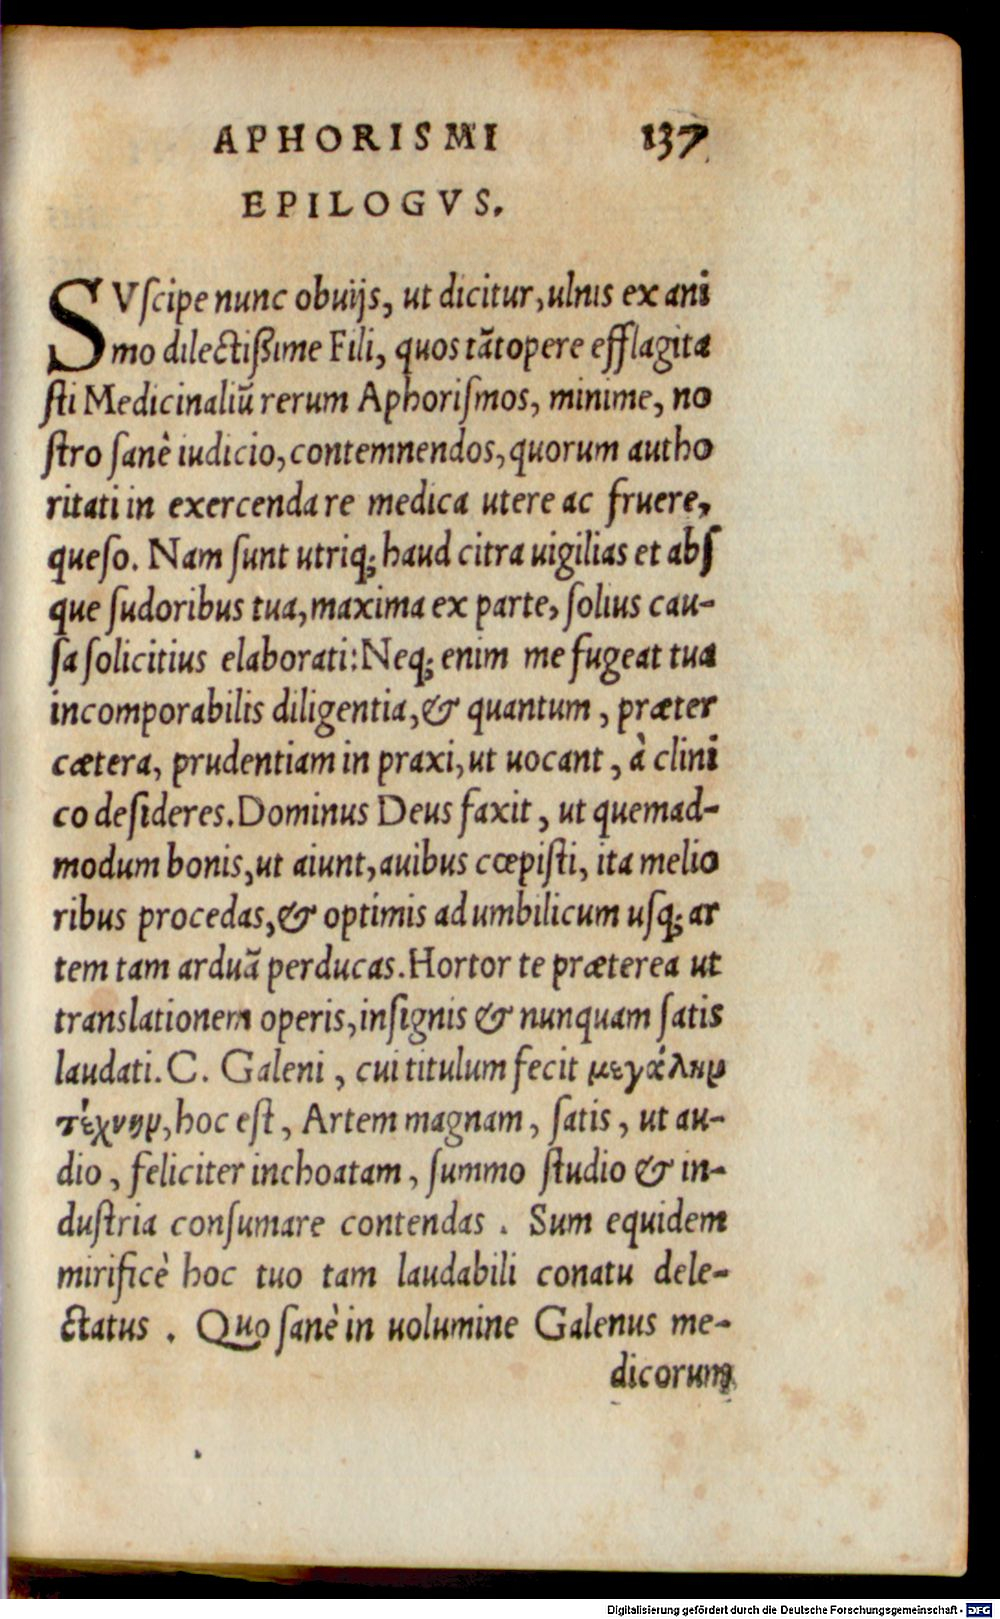 APHORISMI 137
EPILOGVS.
SVſcipe nunc obuijs, ut dicitur, ulnis ex ani
mo dilectißime Fili, quos tãtopere efflagita
ſti Medicinaliũ rerum Aphoriſmos, minime, no
ſtro ſanè iudicio, contemnendos, quorum autho
ritati in exercenda re medica utere ac fruere,
queſo. Nam ſunt utriq; haud citra uigilias et abſ
que ſudoribus tua, maxima ex parte, ſolius cau-
ſa ſolicitius elaborati: Neq; enim me fugeat tua
incomporabilis diligentia, & quantum, præter
cætera, prudentiam in praxi, ut uocant, à clini
co deſideres. Dominus Deus faxit, ut quemad-
modum bonis, ut aiunt, auibus cœpiſti, ita melio
ribus procedas, & optimis ad umbilicum uſq; ar
tem tam arduã perducas. Hortor te præterea ut
translationem operis, inſignis & nunquam ſatis
laudati. C. Galeni, cui titulum fecit μεγάλην
τέχνην, hoc eſt, Artem magnam, ſatis, ut au-
dio, feliciter inchoatam, ſummo ſtudio & in-
duſtria conſumare contendas. Sum equidem
mirificè hoc tuo tam laudabili conatu dele-
ctatus. Quo ſanè in uolumine Galenus me-
dicorum
Digitalisierung gefördert durch die Deutsche Forschungsgemeinschaft - DFG